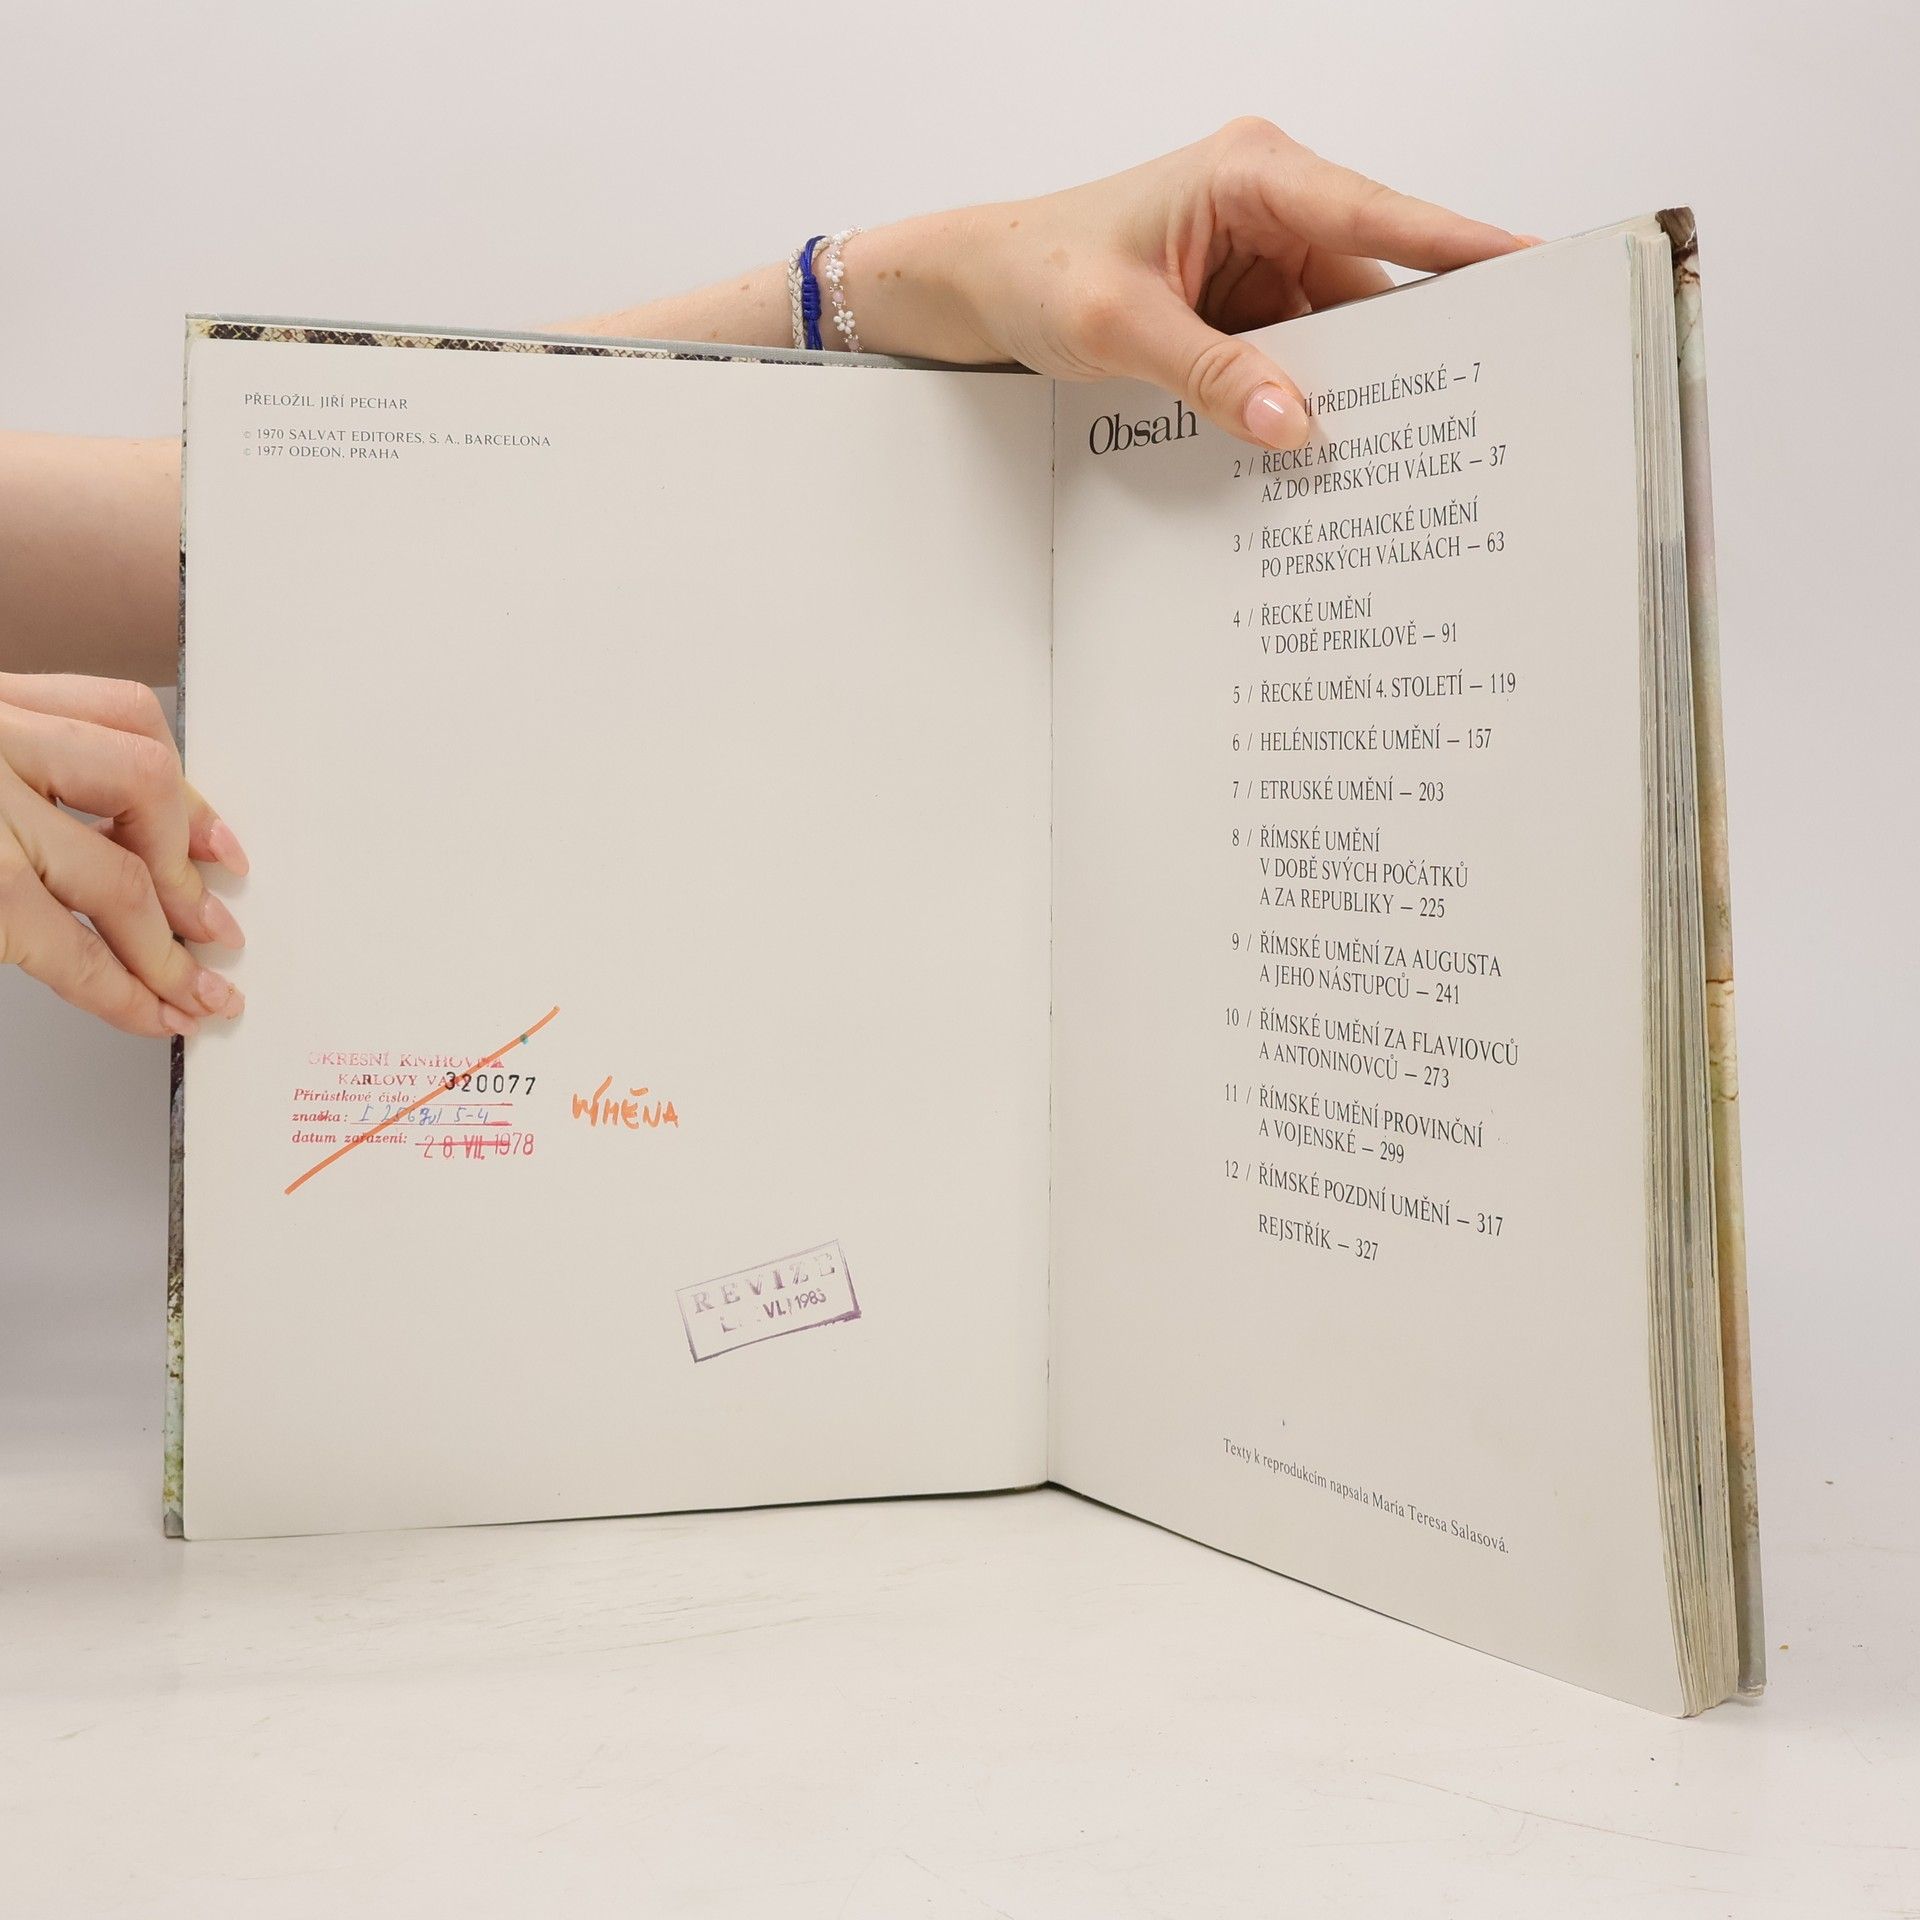 PŘELOŽIL JIŘÍ PECHAR
© 1970 SALVAT EDITORES, S. A., BARCELONA
© 1977 ODEON, PRAHA
OKRESNÍ KNIHOVNA
KARLOVY VARY
320077
Přírůstkové číslo:
značka:
datum zařazení: 28. VII. 1978
VÝMĚNA
REVIZE
VI. 1985
Obsah
PŘEDHELÉNSKÉ – 7
2 / ŘECKÉ ARCHAICKÉ UMĚNÍ
AŽ DO PERSKÝCH VÁLEK – 37
3 / ŘECKÉ ARCHAICKÉ UMĚNÍ
PO PERSKÝCH VÁLKÁCH – 63
4 / ŘECKÉ UMĚNÍ
V DOBĚ PERIKLOVĚ – 91
5 / ŘECKÉ UMĚNÍ 4. STOLETÍ – 119
6 / HELÉNISTICKÉ UMĚNÍ – 157
7 / ETRUSKÉ UMĚNÍ – 203
8 / ŘÍMSKÉ UMĚNÍ
V DOBĚ SVÝCH POČÁTKŮ
A ZA REPUBLIKY – 225
9 / ŘÍMSKÉ UMĚNÍ ZA AUGUSTA
A JEHO NÁSTUPCŮ – 241
10 / ŘÍMSKÉ UMĚNÍ ZA FLAVIOVCŮ
A ANTONINOVCŮ – 273
11 / ŘÍMSKÉ UMĚNÍ PROVINČNÍ
A VOJENSKÉ – 299
12 / ŘÍMSKÉ POZDNÍ UMĚNÍ – 317
REJSTŘÍK – 327
Texty k reprodukcím napsala María Teresa Salasová.